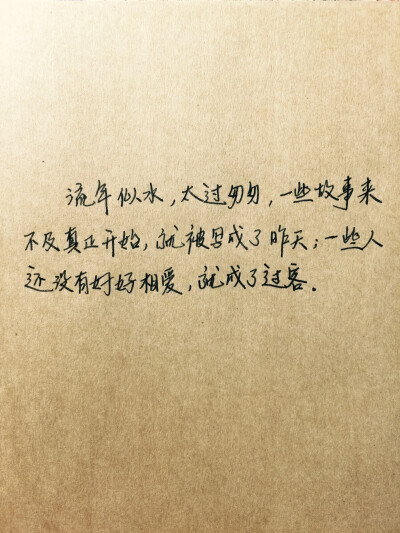 流年似水，太过匆匆，一些故事来
不及真正开始，就被写成了昨天；一些人
还没有好好相爱，就成了过客．